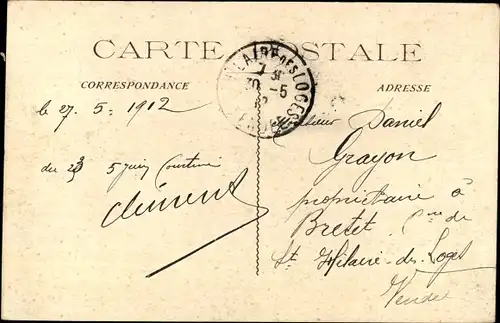 CARTE POSTALE
CORRESPONDANCE
ADRESSE
le 27. 5. 1912
du 23 5 juin
Clément
Monsieur Daniel
Grayon
propriétaire à
Bretet Cne de
St Hilaire-des-Loges
Vendée
HILAIRE DES LOGES
30 -5
12
VENDÉE